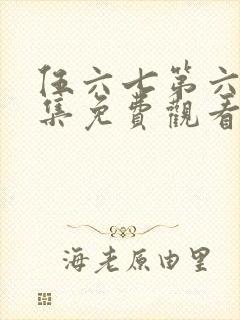 伍六七第六
集免費觀看
海老原由里